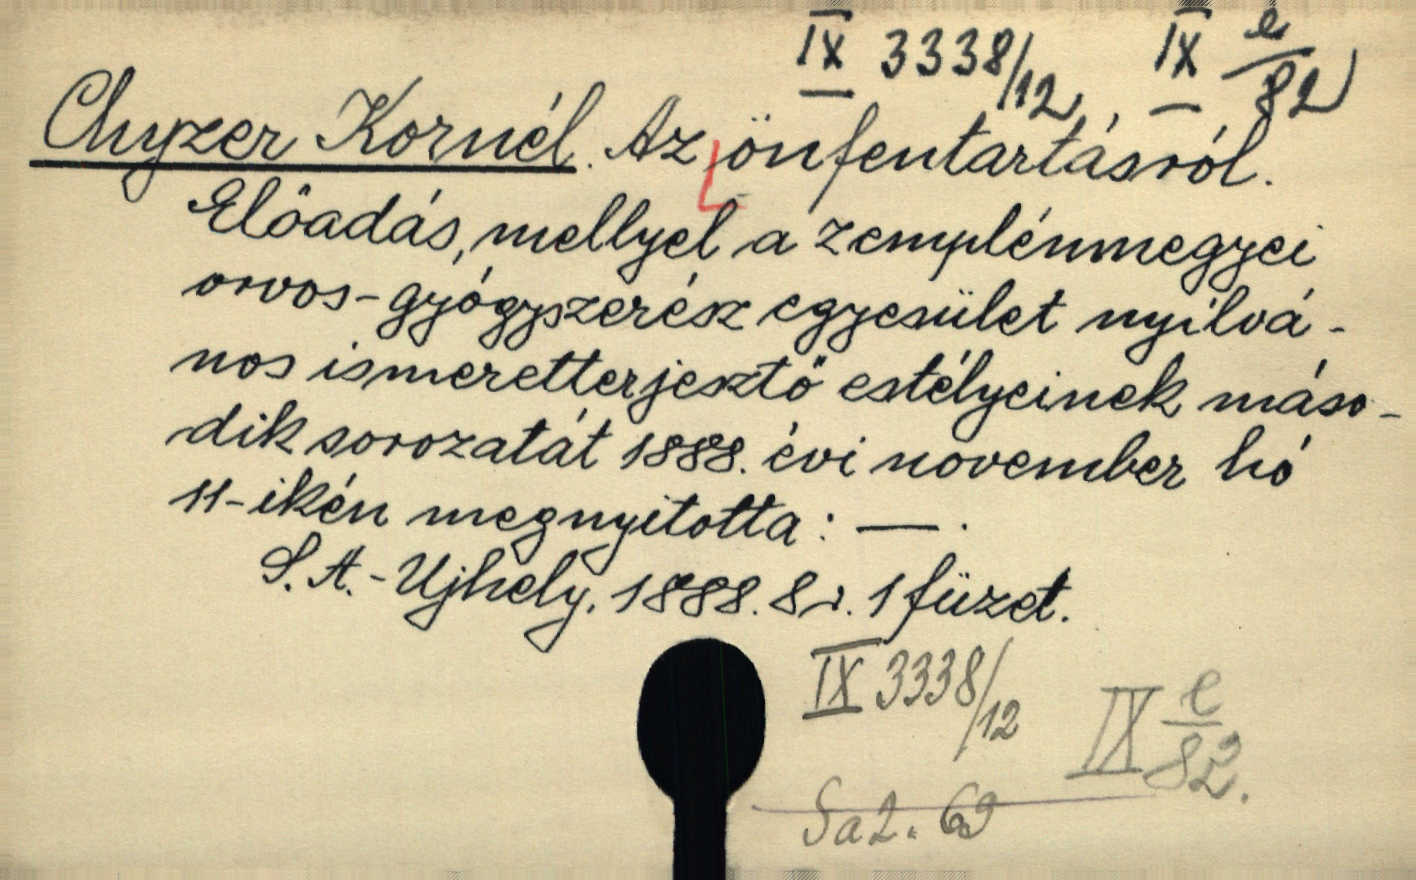 IX 3338/12, IX e/82
Chyzer Kornél. Az önfentartásról.
Előadás, mellyel a zemplénmegyei
orvos-gyógyszerész egyesület nyilvá-
nos ismeretterjesztő estélyeinek máso-
dik sorozatát 1888. évi november hó
11-ikén megnyitotta: — .
S. A.-Ujhely, 1888. 8r. 1 füzet.
IX 3338/12 IX e/82.
Sa2. 63